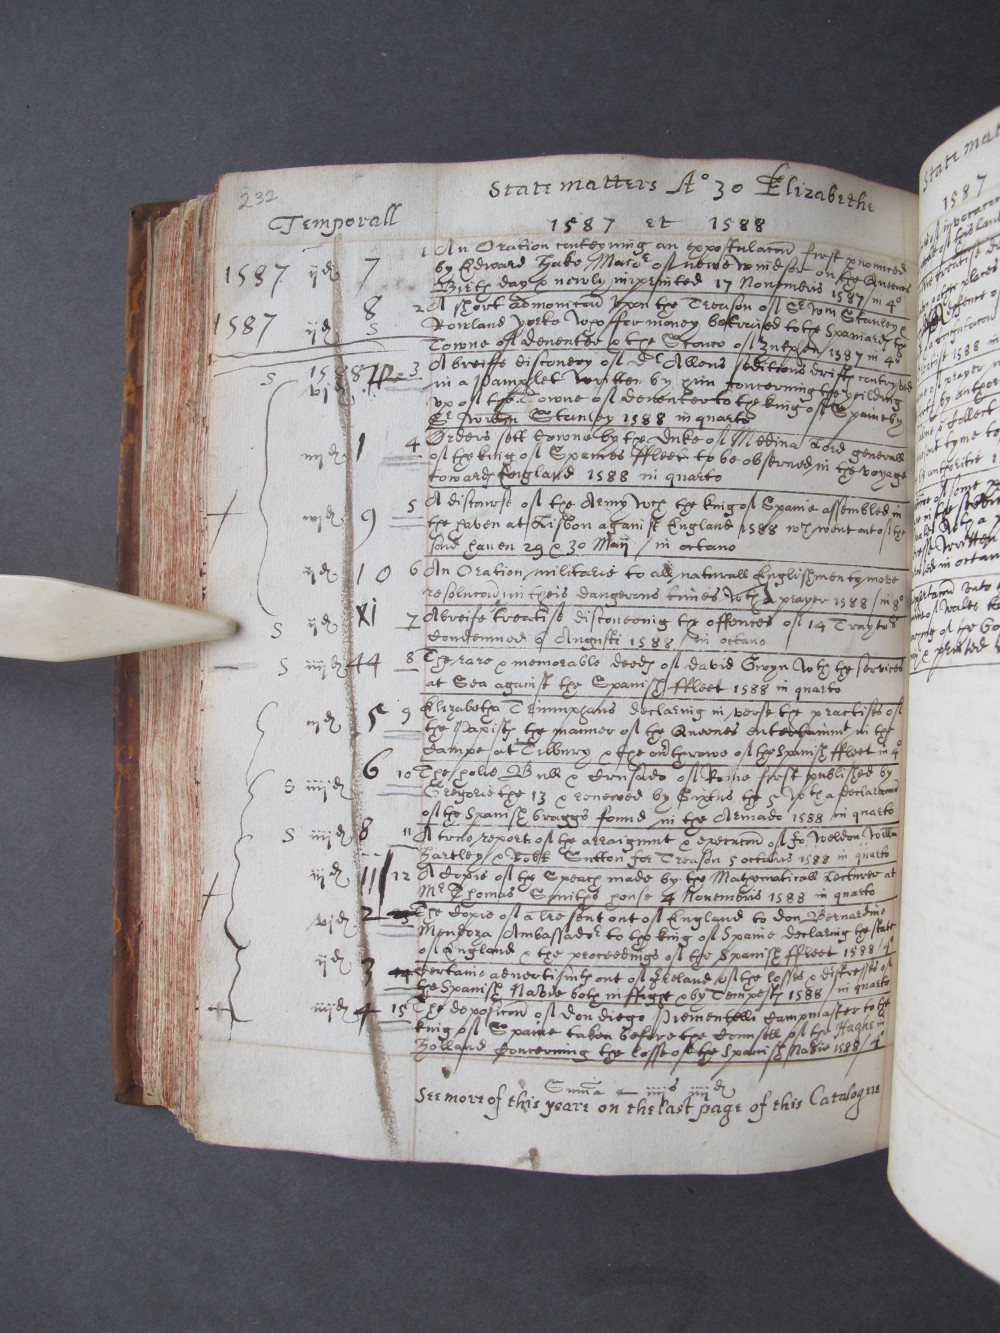 232
State matters Ao 30 Elizabethe
Temporall
1587 et 1588
1587 ijd 7 1 An Oration conteyning an expostulacōn first pronounced
by Edward Hake Maior of newe windsor on the Queenes
Birth day & newly imprinted 17 Novembris 1587 / in 4o
1587 ijd 8 S 2 A short admonicōn vpon the Treason of Sr Wm Stanley &
Rowland Yorke who for money betraied to the Spaniards the
Towne of deventer & the Sconce of Zutphen 1587 in 4o
S 1588 vjd 3 A breiffe discouery of Dr Allens seditious drifts contryved
in a Pamphlet written by him concerning the yeilding
vp of the Towne of deventer to the king of Spaine by
Sr Willm Stanley 1588 in quarto
iijd 1 4 Orders sett downe by the Duke of Medina Lord generall
of the king of Spaines ffleet to be observed in the voyage
toward England 1588 in quarto
9 5 A discourse of the Army wch the king of Spaine assembled in
the haven at Lisbon against England 1588 wch went out of the
said haven 29 & 30 Maij / in octavo
ijd 10 6 An Oration militarie to all naturall Englishmen to move
resolucōn in theis dangerous times wth a prayer 1588 / in 8o
S ijd xi 7 A breife treatise discouering the offences of 14 Traytors
Condemned Augusti 1588 / in octavo
S iiijd 44 8 The rare & memorable deeds of david Gwyn wth the services
at Sea against the Spanish ffleet 1588 in quarto
iijd 5 9 Elizabetha Triumphans declaring in verse the practises of
the Papists the manner of the Queenes entertainmt in the
Campe at Tilbury & the overthrowe of the Spanish ffleet in 4o
S iiijd 6 10 The holie Bull & Crusado of Rome first published by
Gregorie the 13 & renewed by Sixtus the 5 wth a declaracōn
of the Spanish braggs found in the Armado 1588 in quarto
S iiijd 8 11 A true report of the arraignmt & execucōn of Jo: Weldon Willm
Hartley & Robt Sutton for Treason 5 octobris 1588 in quarto
ijd 12 A Copie of the Speach made by the Mathematicall Lecturer at
Mr Thomas Smithes house 4 Novembris 1588 in quarto
vjd 2 The Copie of a lre sent out of England to don Bernardine
Mendoza Ambassador to the king of Spaine declaring the state
of England & the proceedings of the Spanish ffleet 1588 / 4o
ijd 3 Certaine advertismts out of Ireland of the losses & distresses of
the Spanish Navie both in ffight & by Tempests 1588 / in quarto
iiijd 4 15 The deposicōn of don diego Piementelli Campmaster to the
king of Spaine taken before the Counsell of the Haghe in
Holland Concerning the losse of the Spanish Navie 1588 / 4o
Summa iiijs iiijd
See more of this yeare on the last page of this Catalogue
State mat
1587